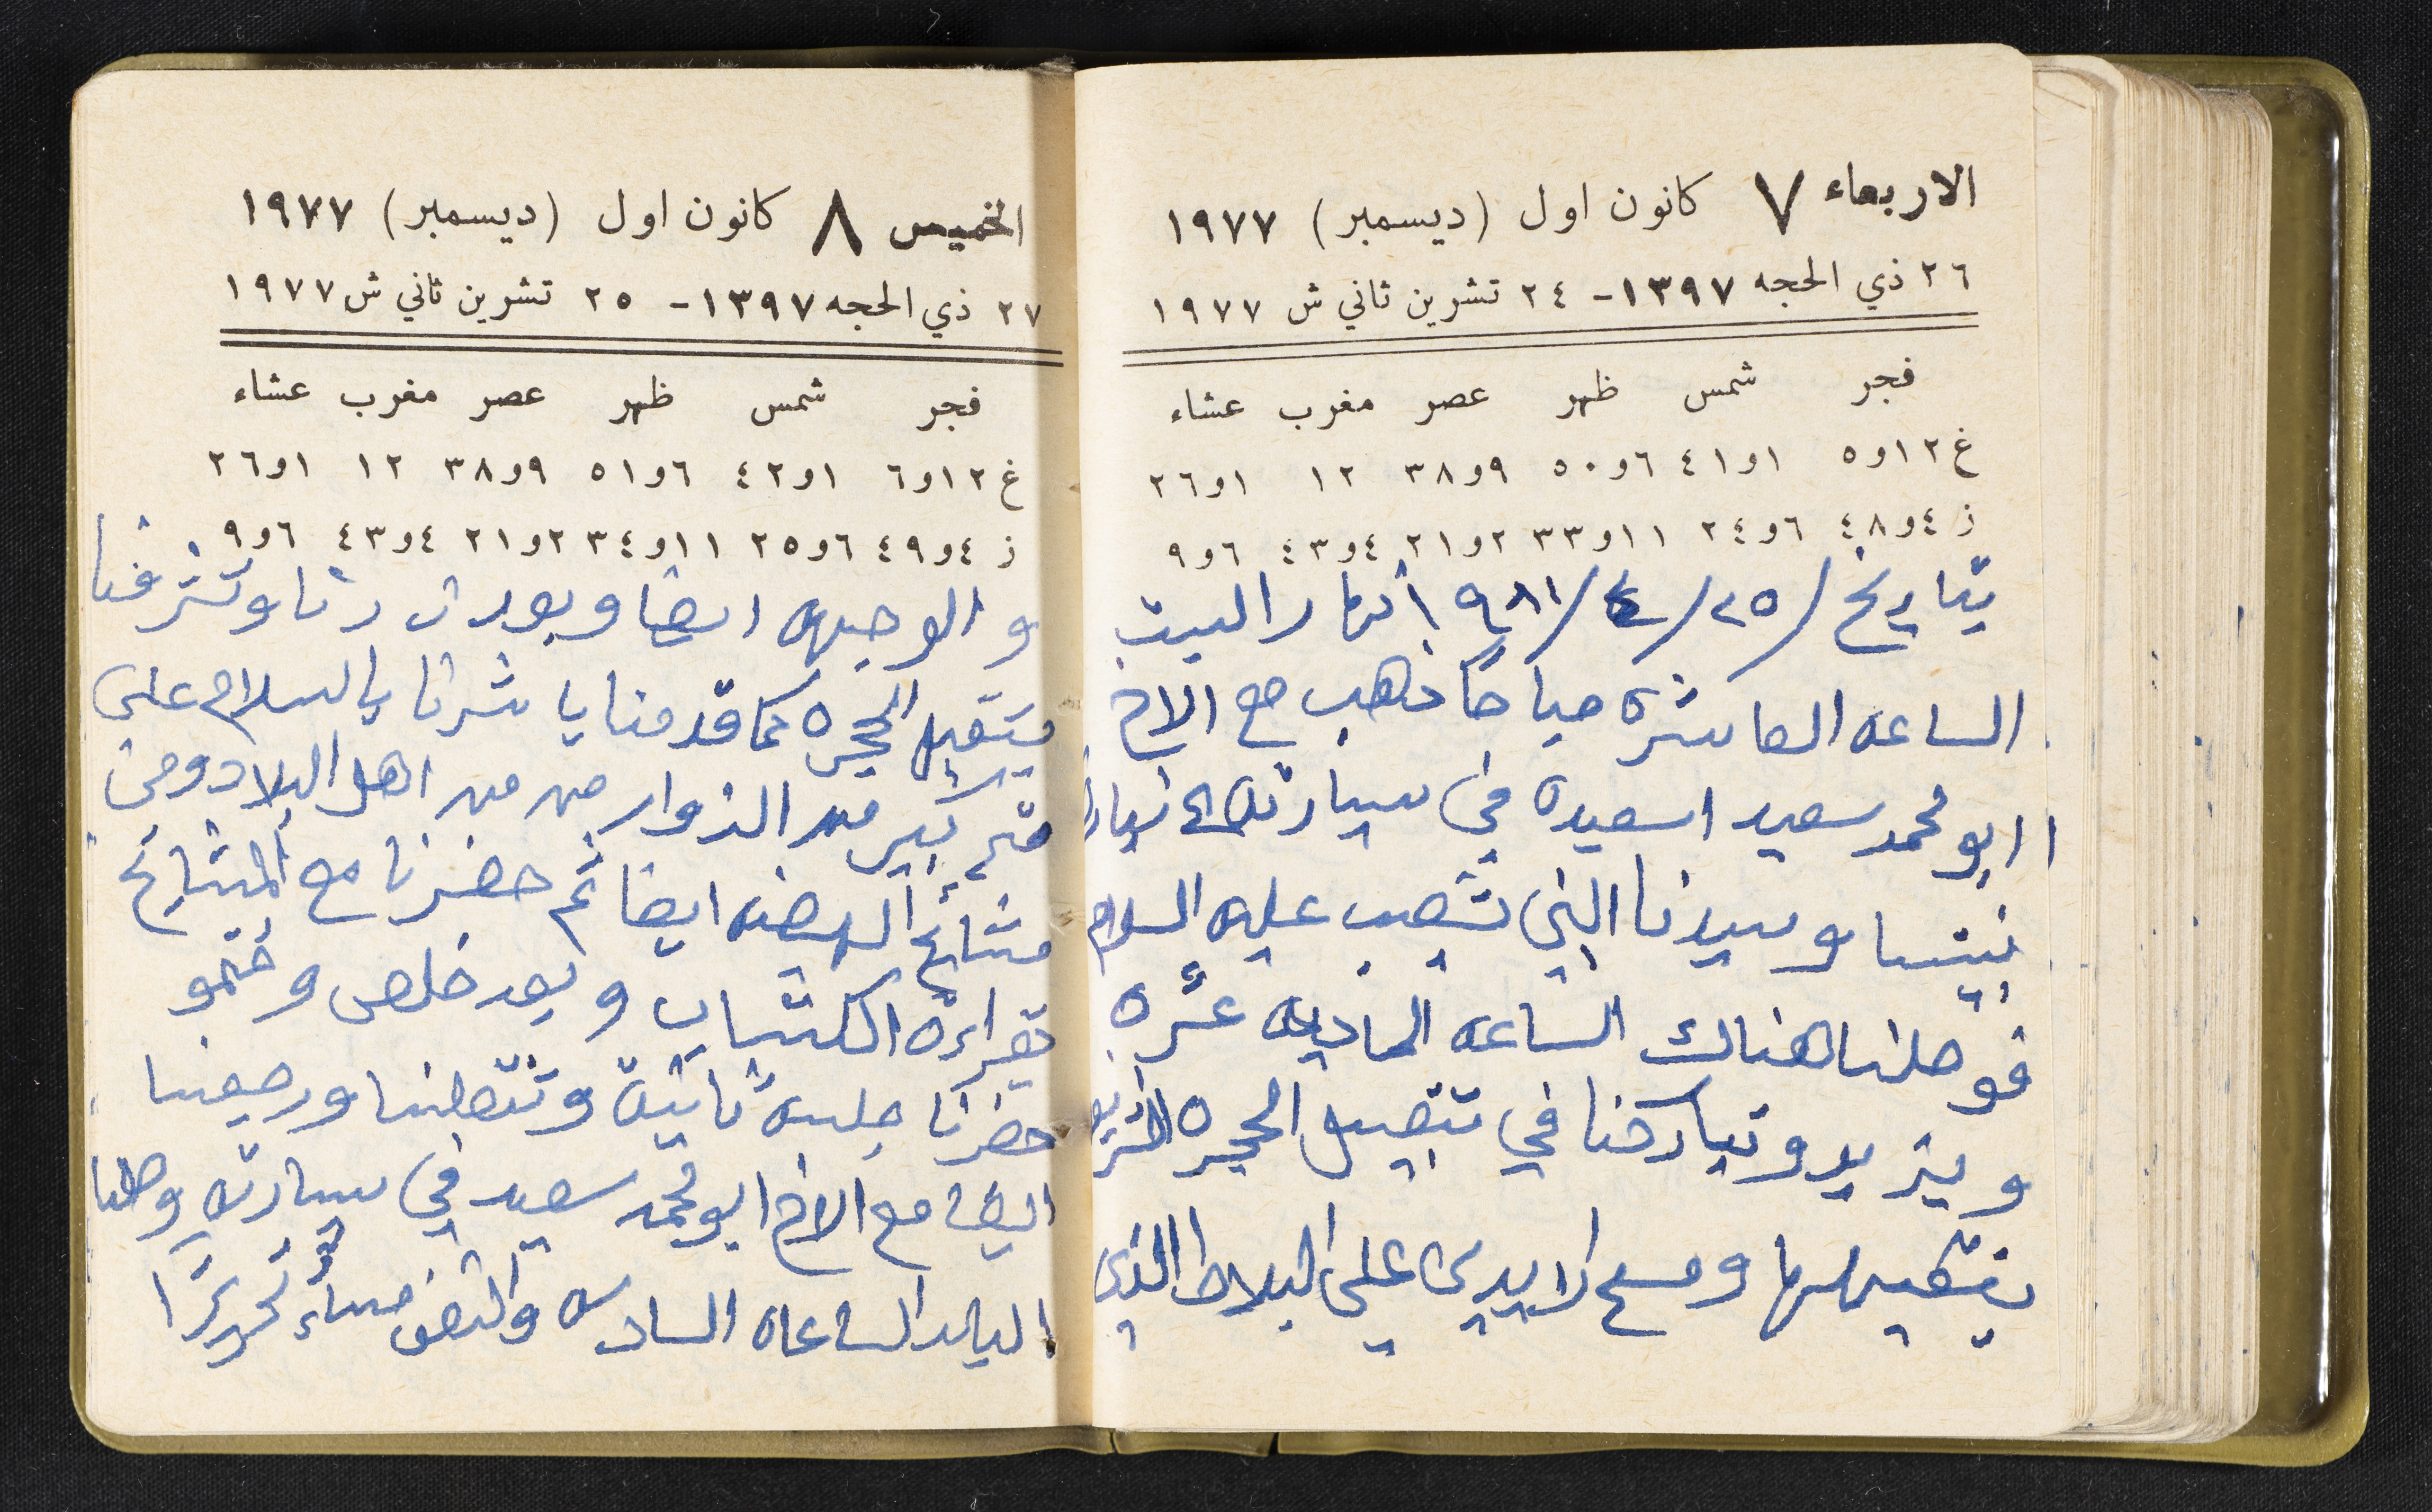 الاربعاء ٧ كانون اول (ديسمبر) ١٩٧٧
٢٦ ذي الحجه ١٣٩٧- ٢٤ تشرين ثاني ش ١٩٧٧
فجر شمس ظهر عصر مغرب عشاء
غ ١٢و٥ ١و٤١ ٦و٥٠ ٩و٣٨ ١٢ ١و٢٦
ز ٤و٤٨ ٦و٢٤ ١١و٣٣ ٢و٢١ ٤و٤٣ ٦و٩
بتاريخ /٢٥/٤/٩٨١ نهار السبت
الساعه العاشره صباحًا ذهب مع الاخ
ابو محمد سعيد اسعيده في سيارته زيارة
نبينا وسيدنا النبي شعيب عليه السلام
فوصلنا هناك الساعه الحاديه عشره
ويزيد وتباركنا في تقبيل الحجره الشريفه
بتقبيلها ومسح الايدي على البلاط الذي
الخميس ٨ كانون اول (ديسمبر) ١٩٧٧
٢٧ ذي الحجه ١٣٩٧- ٢٥ تشرين ثاني ش ١٩٧٧
فجر شمس ظهر عصر مغرب عشاء
غ ١٢و٦ ١و٤٢ ٦و٥١ ٩و٣٨ ١٢ ١و٢٦
ز ٤و٤٩ ٦و٢٥ ١١و٣٤ ٢و٢١ ٤و٤٣ ٦و٩
والوجيهه ايضا وبعد زرنا وتشرفنا
بتقبيل الحجره كما قدمنا باشرنا بالسلام على
قسم كبير من الزوار من اهل البلاد ومن
مشايخ البيضه ايضا ثم حضرنا مع المشايخ
بقراءة الكتاب وبعد خلص وختمو
حضرنا جلسه ثانية وتنقلنا ورجعنا
ايضا مع الاخ ابو محمد سعيد في سيارته وصلنا
البلد الساعه السادسه والنصف مساءً تحريرًا